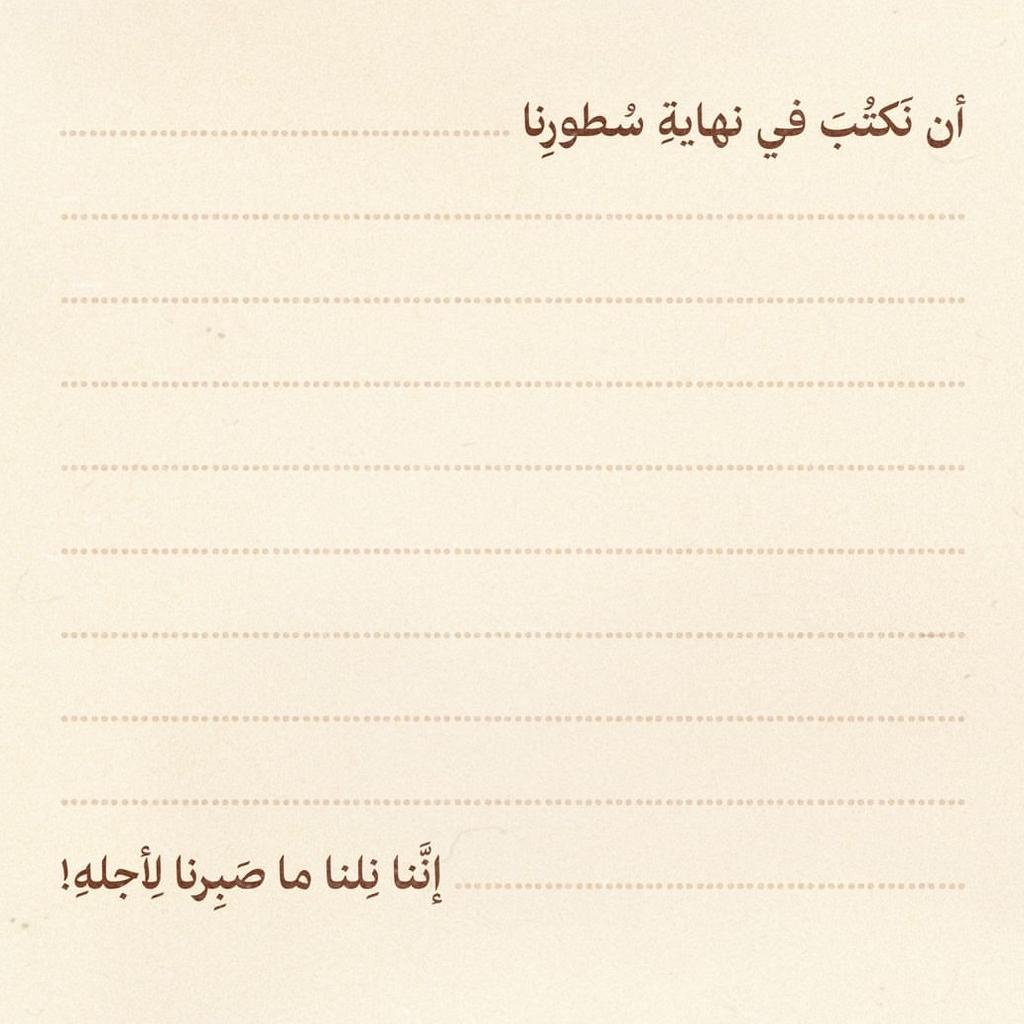 أن نَكتُبَ في نهايةِ سُطورِنا
إنَّنا نِلنا ما صَبِرنا لِأجلهِ!